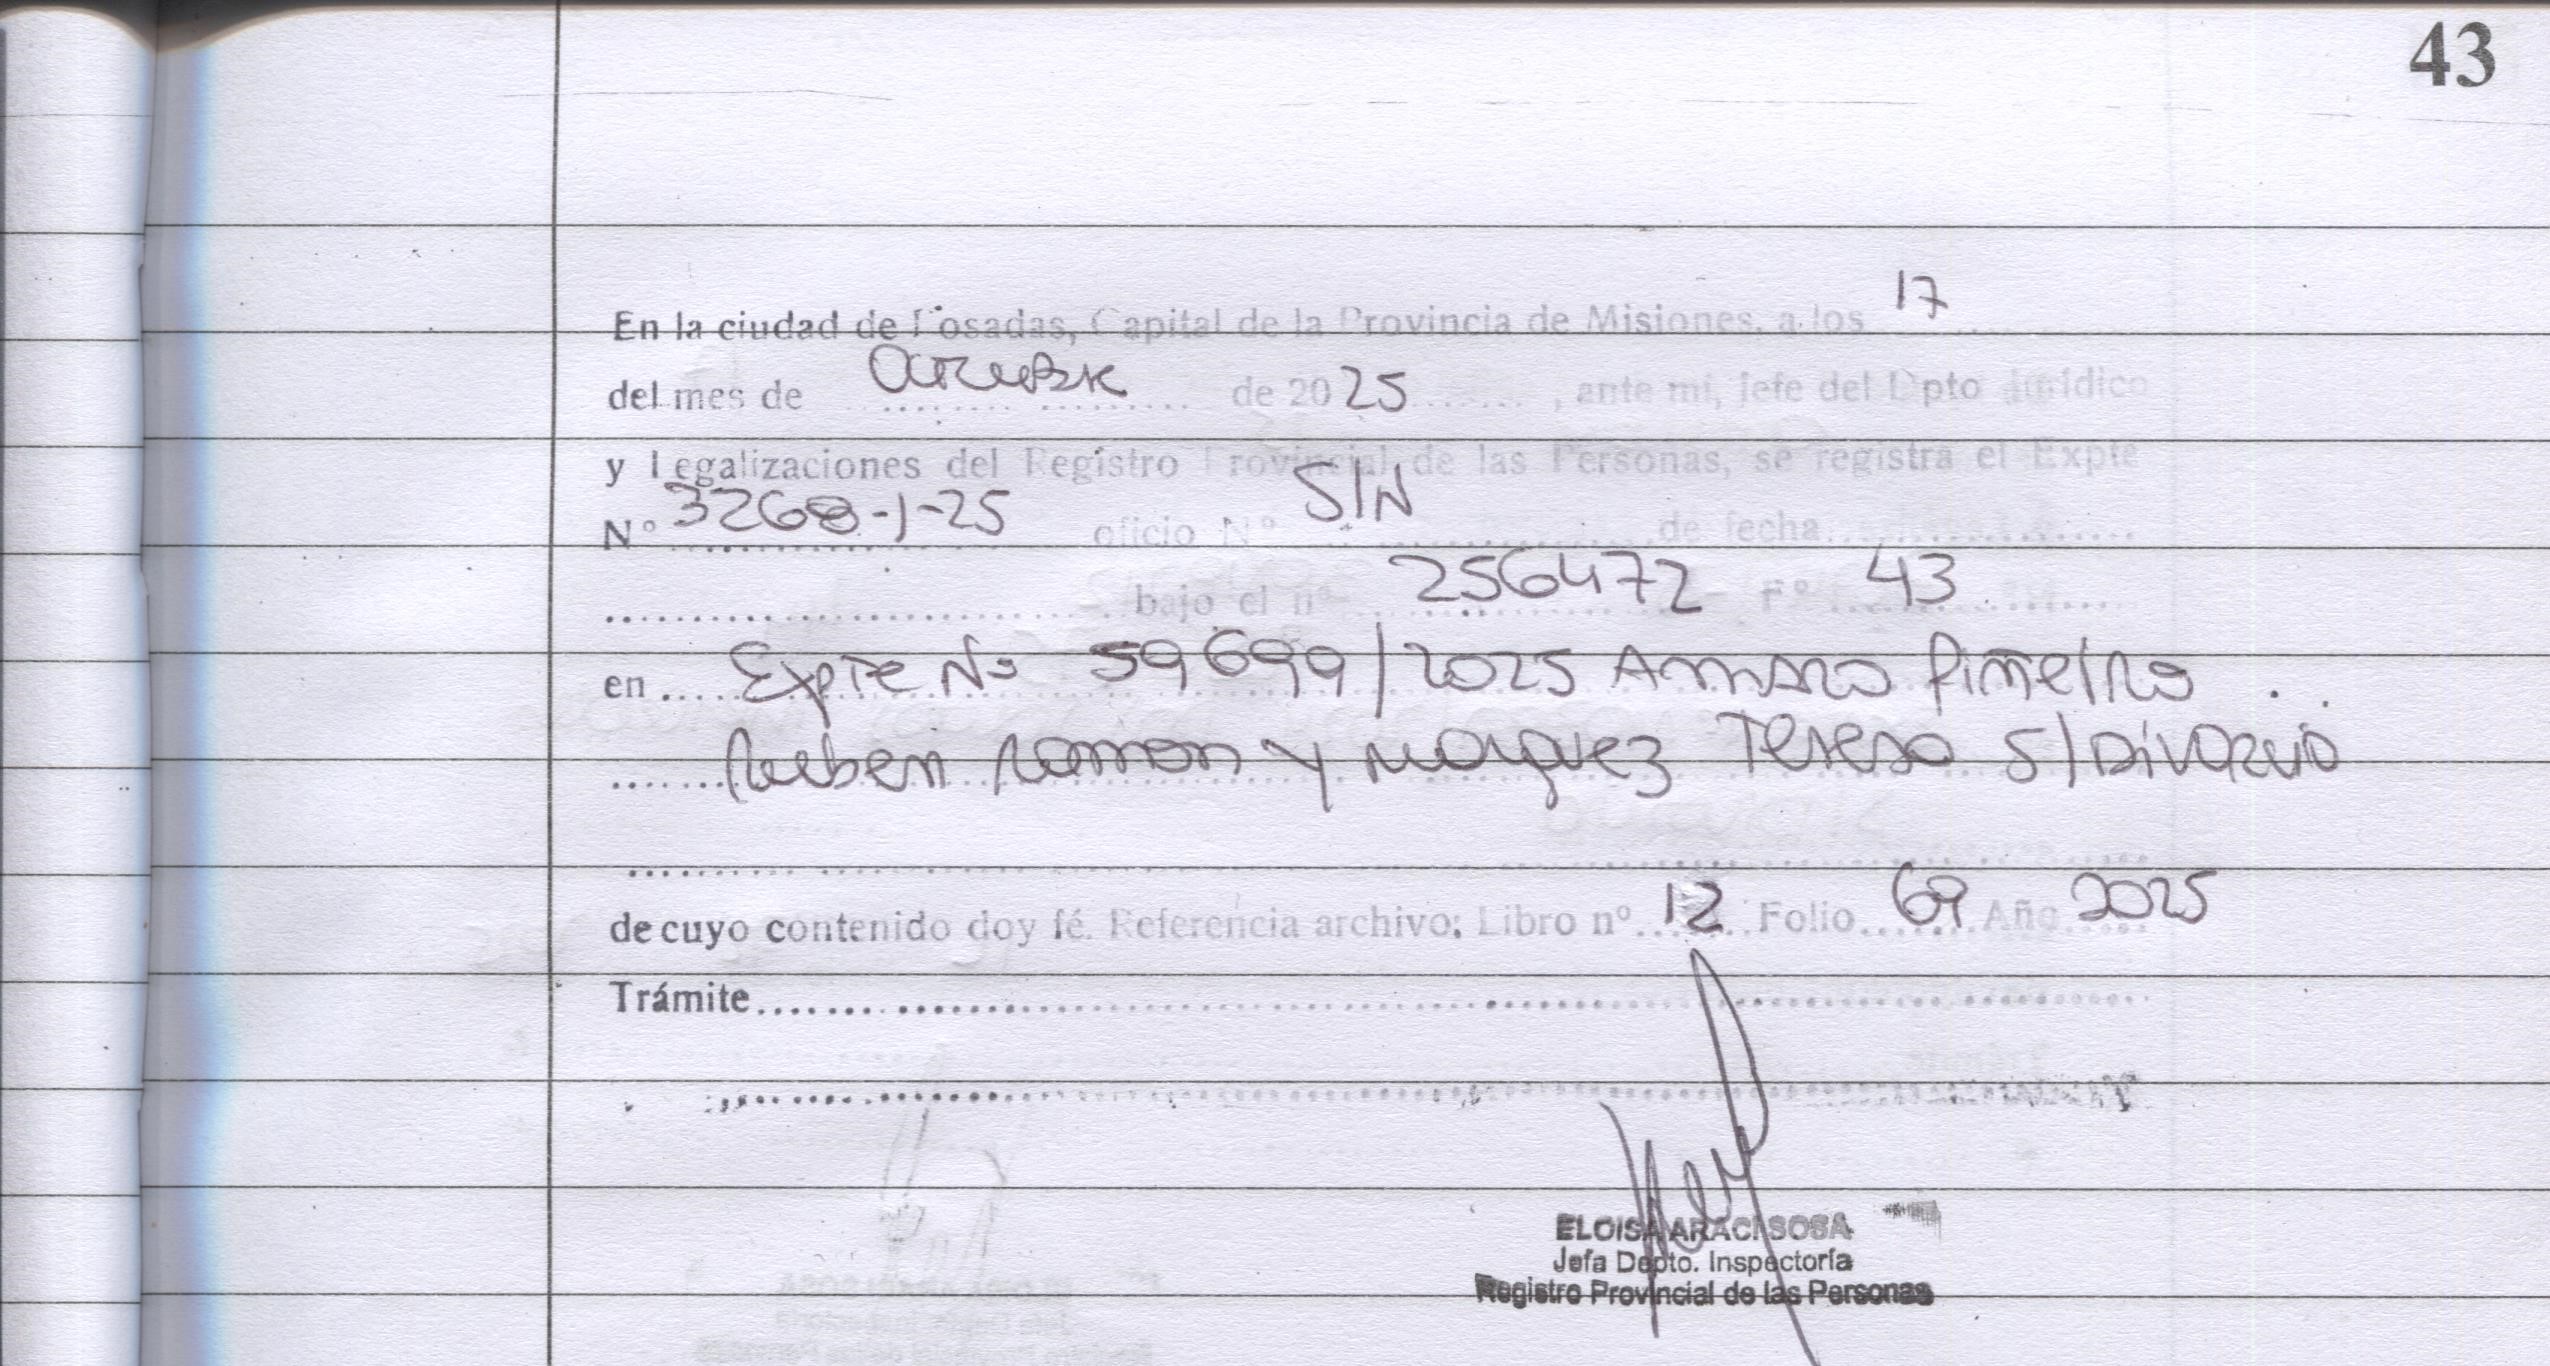 43
En la ciudad de Posadas, Capital de la Provincia de Misiones, a los 17
del mes de octubre de 2025, ante mi, Jefe del Dpto Jurídico
y Legalizaciones del Registro Provincial de las Personas, se registra el Expte
N° 3268-1-25 oficio N° S/N de fecha
bajo el n° 256472 F° 43
en Expte No 59699/2025 Amaro Piñeiro
Ruben Ramon y Marquez Teresa S/Divorcio
de cuyo contenido doy fé. Referencia archivo: Libro n° 12 Folio 69 Año 2025
Trámite
ELOISA ARACI SOSA
Jefa Depto. Inspectoría
Registro Provincial de las Personas